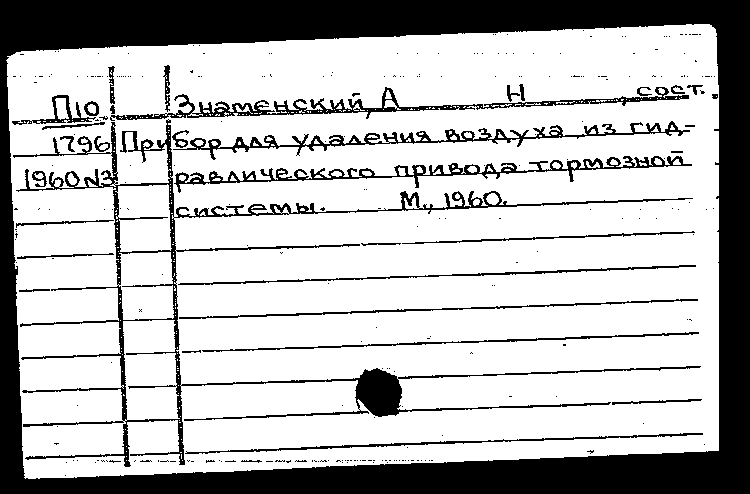 П10 Знаменский, А Н , сост.
1796 Прибор для удаления воздуха из гид-
1960 N3 равлического привода тормозной
системы. М., 1960.